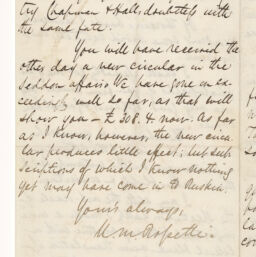 try Chapman & Hall, doubtless with
the same fate.
You will have received the
other day a new circular in the
Seddon affair. We have gone on ex-
ceedingly well so far, as that will
show you — £308 & now. As far
as I know, however, the new circu-
lar produces little effect; but sub-
scriptions of which I know nothing
yet may have come in to Ruskin.
Yours always,
W. M. Rossetti.